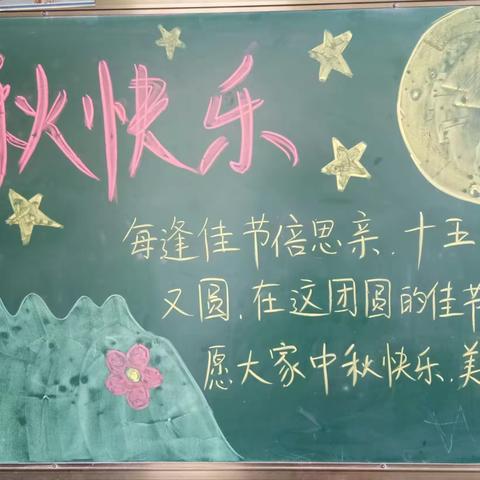 秋快乐
每逢佳节倍思亲.十五
又圆.在这团圆的佳节
愿大家中秋快乐.美